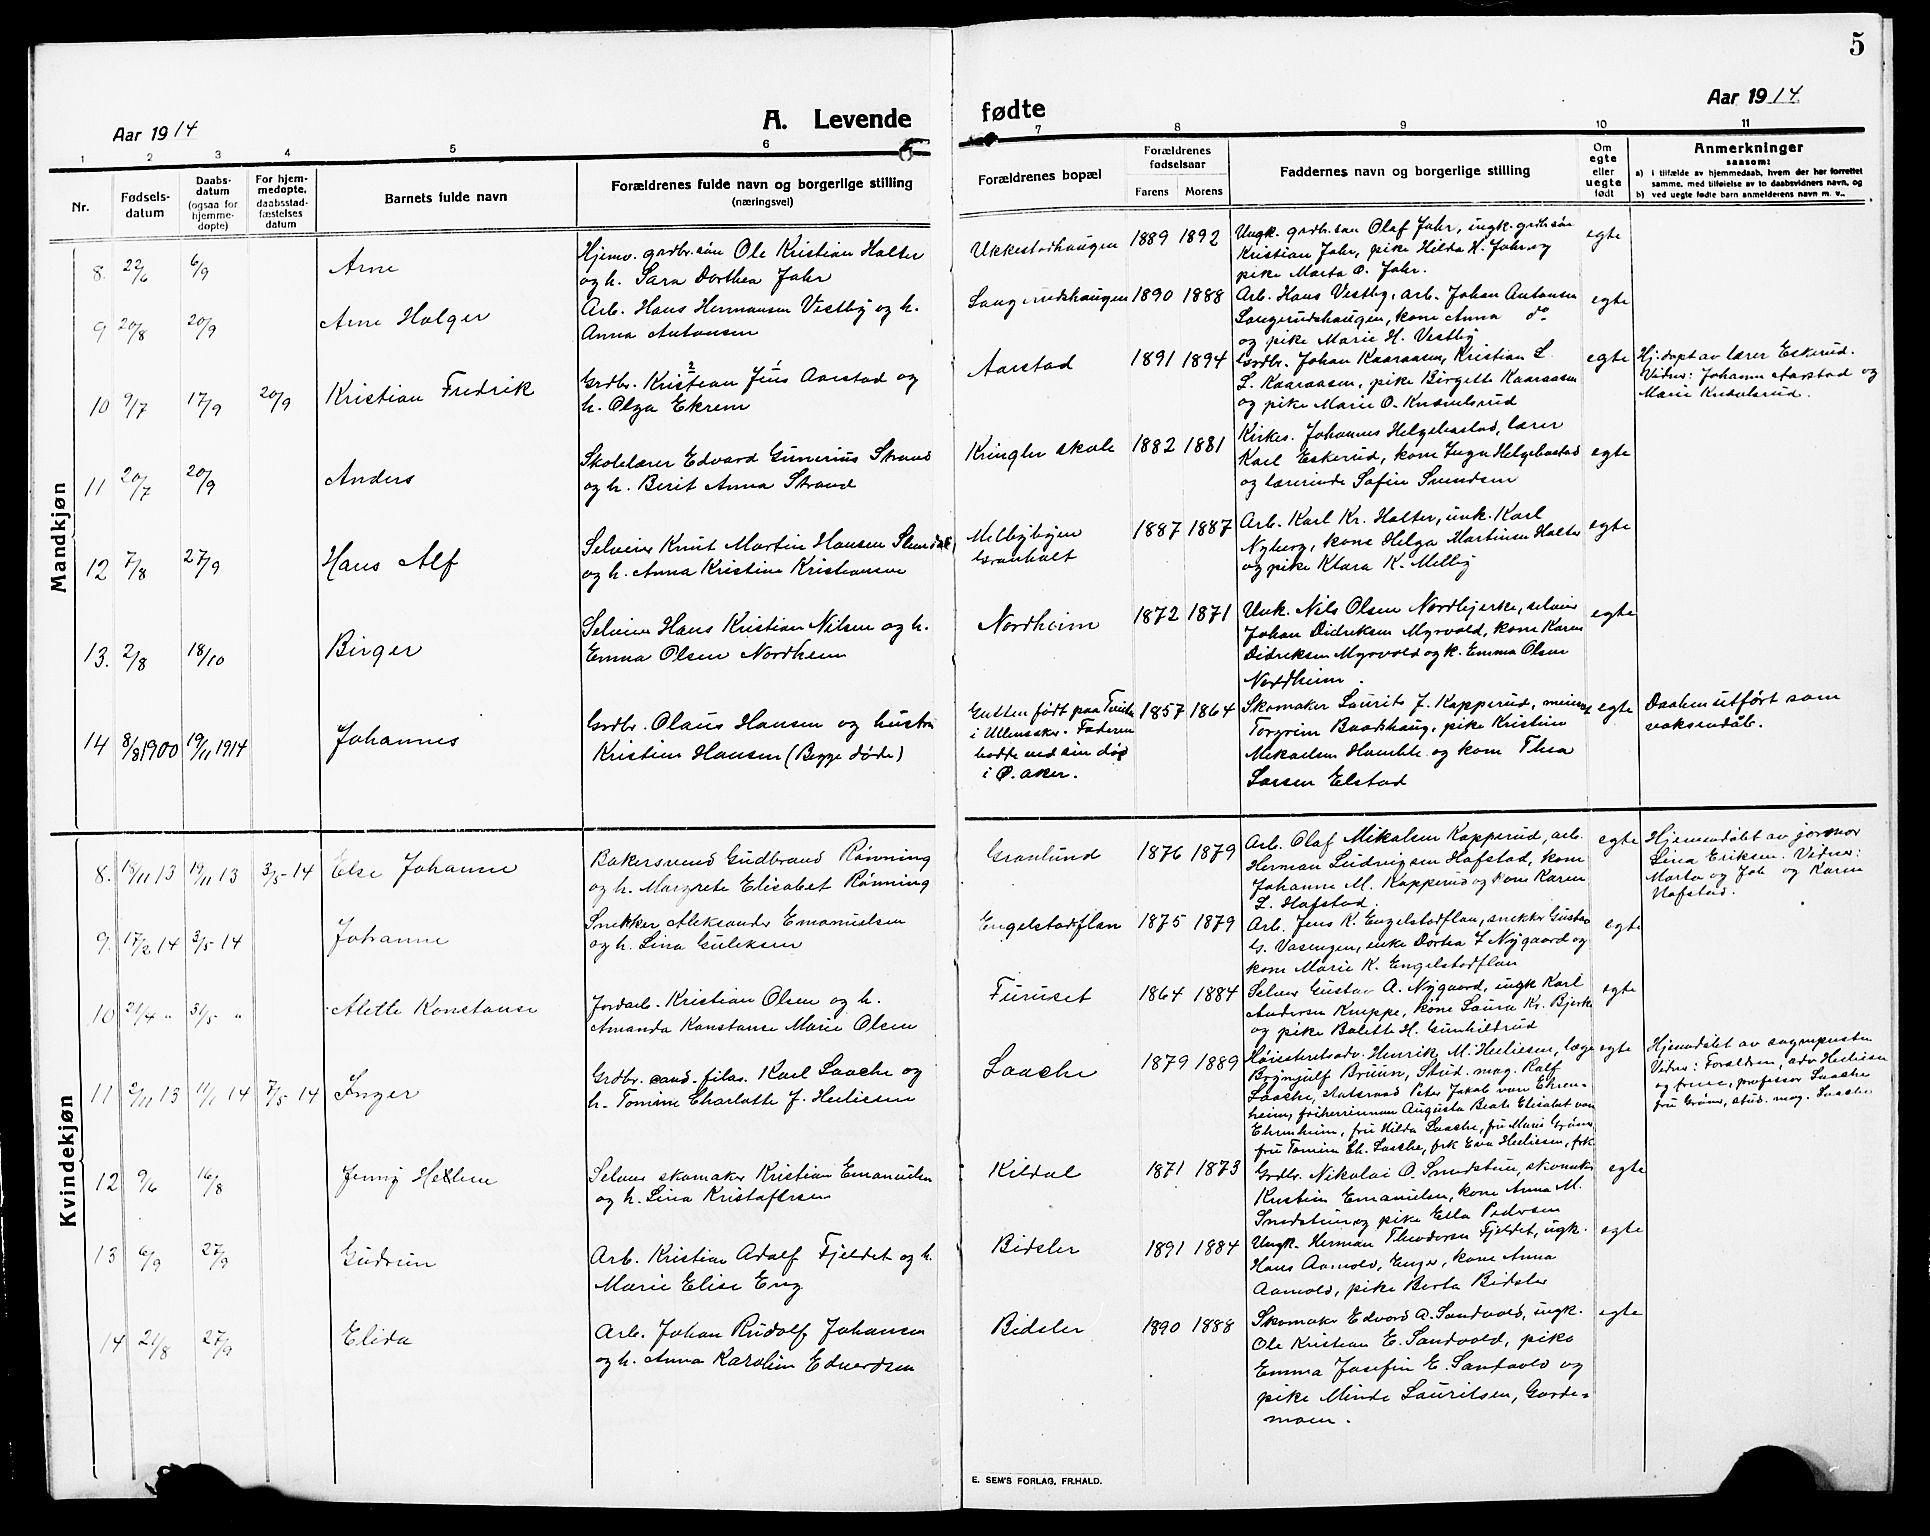 5
Aar 1914
A. Levende
fødte
Aar 1914
1 2 3 4 5 6 7 8 9 10 11
Nr.
Fødsels-
datum
Daabs-
datum
(ogsaa for
hjemme-
døpte)
For hjem-
medøpte,
daabsstad-
fæstelses
datum
Barnets fulde navn
Forældrenes fulde navn og borgerlige stilling
(næringsvei)
Forældrenes bopæl
Forældrenes
fødselsaar
Farens Morens
Faddernes navn og borgerlige stilling
Om
egte
eller
uegte
født
Anmerkninger
saasom:
a) i tilfælde av hjemmedaab, hvem der har forrettet
samme, med tilføielse av to daabsvidners navn, og
b) ved uegte fødte barn anmelderens navn m. v..
Mandkjøn
8. 22/6 6/9
Arne
Hjemv. grdbr. søn Ole Kristian Holter
og h. Sara Dorthea Jahr
Ukkestadhaugen 1889 1892
Ungk. grdbr. søn Olaf Jahr, ungk. grdbr. søn
Kristian Jahr, pike Hilda K. Jahr og
pike Marta O. Jahr.
egte
9 20/8 20/9
Arne Holger
Arb. Hans Hermansen Vestby og h.
Anna Antonsen
Langerudshaugen 1890 1888
Arb. Hans Vestby, arb. Johan Antonsen
Langerudshaugen, kone Anna do
og pike Marie H. Vestby
egte
10 9/7 17/9 20/9
Kristian Fredrik
Grdbr. Kristian Jüus Aarstad og
h. Olga Ekrem
Aarstad 1891 1894
Grdbr. Johan Kaaraasen, Kristian L.
L. Kaaraasen, pike Birgette Kaaraasen
og pike Marie O. Knudelsrud
egte
Hj. døpt av lærer Eskerud.
Vidner: Johanne Aarstad og
Marie Knudelsrud.
11 20/7 20/9
Anders
Skolelærer Edvard Gunerius Strand
og h. Berit Anna Strand
Kringler skole 1882 1881
Kirkes. Johannes Helgebostad, lærer
Karl Eskerud, kone Inga Helgebostad
og lærerinde Sofie Svendsen
egte
12 7/8 27/9
Hans Alf
Selveier Knut Martin Hansen
og h. Anna Kristine Kristiansen
Melbybyen
Granholt
1887 1887
Arb. Karl Kr. Holter, unk. Karl
Nyberg, kone Helga Martinsen Holter
og pike Klara K. Melby
egte
13. 2/8 18/10
Birger
Selveier Hans Kristian Nilsen og h.
Emma Olsen Nordhem
Nordheim 1872 1871
Unk. Nils Olsen Nordbjerke, selveier
Johan Didriksen Myrvold, kone Karen
Didriksen Myrvold og k. Emma Olsen
Nordheim.
egte
14 8/8 1900 19/11 1914
Johannes
Grdbr. Olaus Hansen og hustru
Kristine Hansen (Begge døde)
Gutten født paa
i Ullensaker. Faderen
bodde ved sin død
i Ø. aker.
1857 1864
Skomaker Laurits J. Kapperud,
Torgrim Baardshaug, pike Kristine
Mikaelsen Humble og kone Thea
Larsen Elstad
egte
Daaben utført som
voksendåb.
Kvindekjøn
8. 18/11 13 19/11 13 3/5-14
Else Johanne
Bakersvend Gudbrand Rønning
og h. Margrete Elisabet Rønning
Granlund 1876 1879
Arb. Olaf Mikalsen Kapperud, arb.
Herman Ludvigsen Hafstad, kone
Johanne M. Kapperud og kone Karen
L. Hafstad.
egte
Hjemmedøbt av jormor
Lina Eriksen. Vidner:
Marta og Joh. og Karen
Hafstad.
9. 17/2 14 3/5-14
Johanne
Snekker Aleksander Emanuelsen
og h. Lina Guleksen
Engelstadflan 1875 1879
Arb. Jens K. Engelstadflan, snekker Gustav
G. Vasengen, enke Dortea J. Nygaard og
kone Marie K. Engelstadflan
egte
10 21/4 " 31/5 "
Alette Konstanse
Jordarb. Kristian Olsen og h.
Amanda Konstanse Marie Olsen
Furuset 1864 1884
Selveier Gustav A. Nygaard, ungk Karl
Andersen Knuppe, kone Laura Kr. Bjerke
og pike Balette H. Gunhildrud
egte
11 2/11 13 11/1 14 7/5-14
Inger
Grdbr. cand. filos. Karl Laache og
h. Tomine Charlotte J. Heiliesen
Laache 1879 1889
Høiesteretsadv. Henrik M. Heiliesen, læge
Brynjulf Bruun, Stud. mag. Rolf
Laache, Statsraad Peter Jakob von Ehren-
heim, friherrinnan Augusta Beate Elisabet von
Ehrenheim, fru Hilda Laache, fru Marie Grøner
fru Tomine Ch. Laache, frk Eva Heiliesen, frk.
egte
Hjemmedøbt av sognepresten
Vidner: Foreldren, adv. Heiliesen
og frue, professor Laache
fru Grøner, stud. mag. Laache
12 9/6 16/8
Jenny Helene
Selveier skomaker Kristian Emanuelsen
og h. Lina Kristofersen
Kildal 1871 1873
Grdbr. Nikolai O. Smedstuen, skomaker
Kristian Emanuelsen, kone Anna M.
Smedstuen og pike Ella Pedersen
egte
13 6/9 27/9
Gudrun
Arb. Kristian Adolf Fjeldet og h.
Marie Elise Eng
Bidsler 1891 1884
Ungk. Herman Theodorsen Fjeldet, ugk.
Hans Aamold, Enger, kone Anna
Aamold, pike Berta Bidsler
egte
14 21/8 27/9
Elida
Arb. Johan Rudolf Johansen
og h. Anna Karoline Edvardsen
Bidsler 1890 1888
Skomaker Edvard A. Sandvold, ungk.
Ole Kristian E. Sandvold, pike
Emma Josefine E. Sandvold og
pike Minda Lauritsen, Garde-
moen.
egte
E. SEM'S FORLAG, FR.HALD.